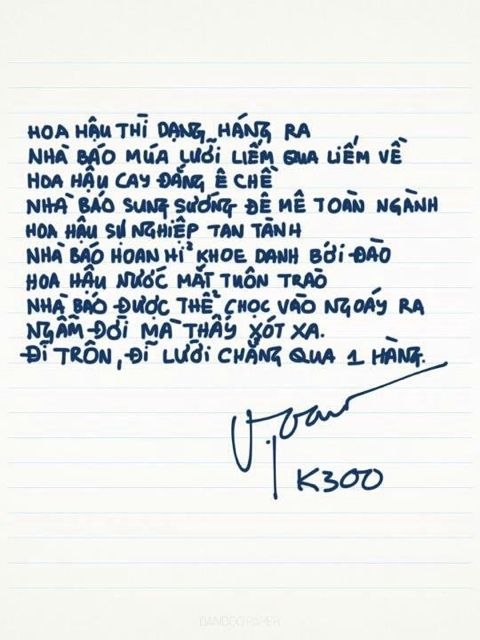 HOA HẬU THÌ DẠNG HÁNG RA
NHÀ BÁO MÚA LƯỠI LIẾM QUA LIẾM VỀ
HOA HẬU CAY ĐẮNG Ê CHỀ
NHÀ BÁO SUNG SƯỚNG ĐÊ MÊ TOÀN NGÀNH
HOA HẬU SỰ NGHIỆP TAN TÀNH
NHÀ BÁO HOAN HỈ KHOE DANH BỚI ĐÀO
HOA HẬU NƯỚC MẮT TUÔN TRÀO
NHÀ BÁO ĐƯỢC THỂ CHỌC VÀO NGOÁY RA
NGẪM ĐỜI MÀ THẤY XÓT XA.
ĐĨ TRÔN, ĐĨ LƯỠI CHẲNG QUA 1 HÀNG.
K300